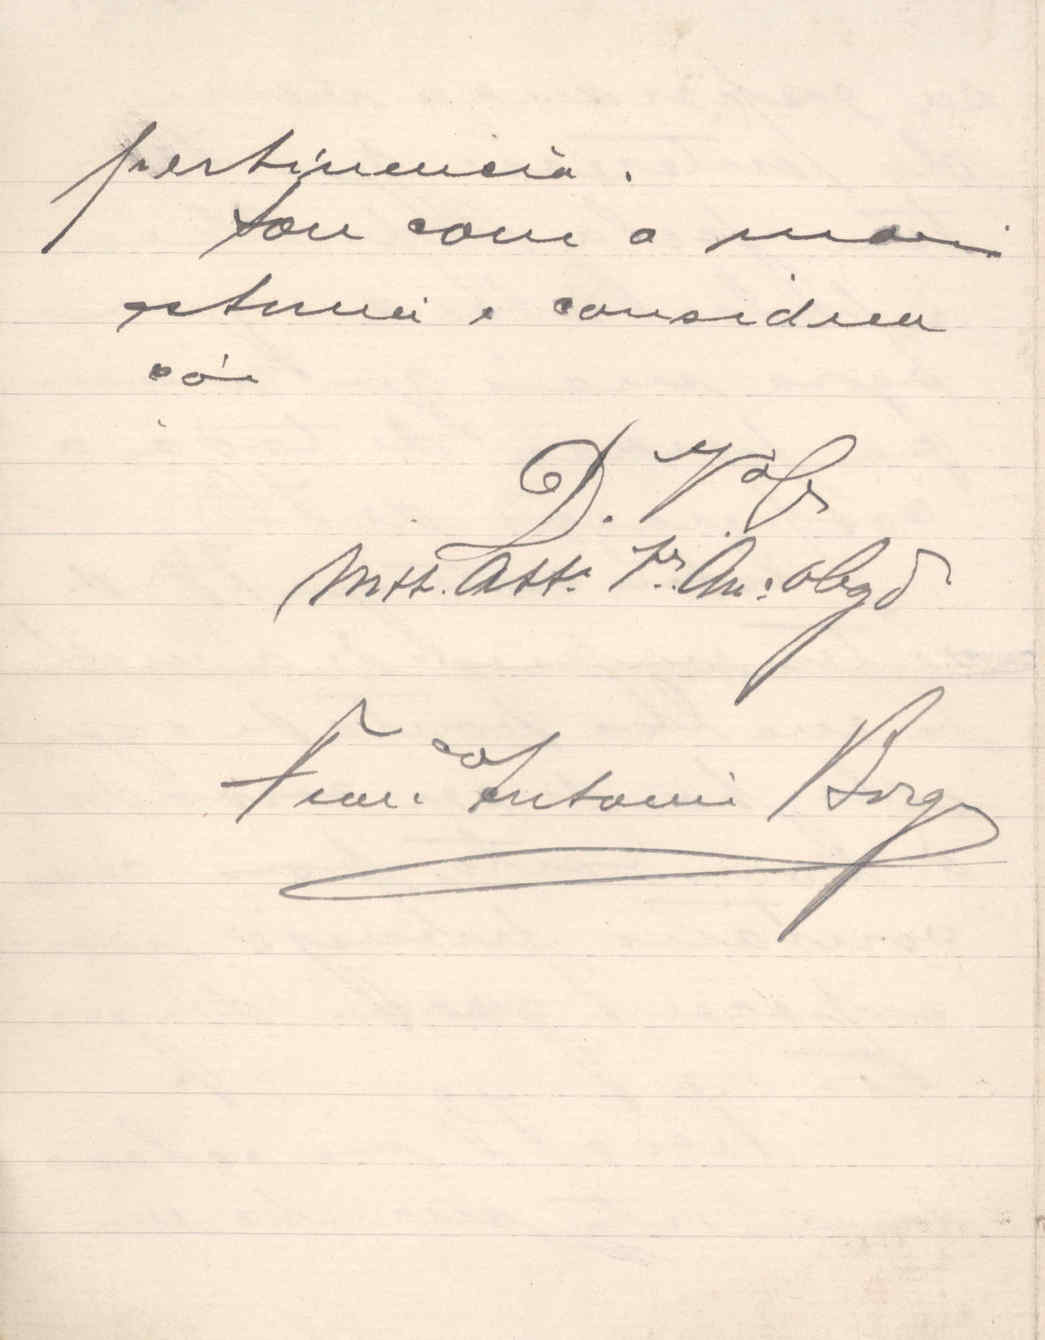 pertinencia.
Sou com a maior
estima e considera
ção
D. V.
Mtt. Att. Vr. Am: obgd
Fran.co Antonio Borges